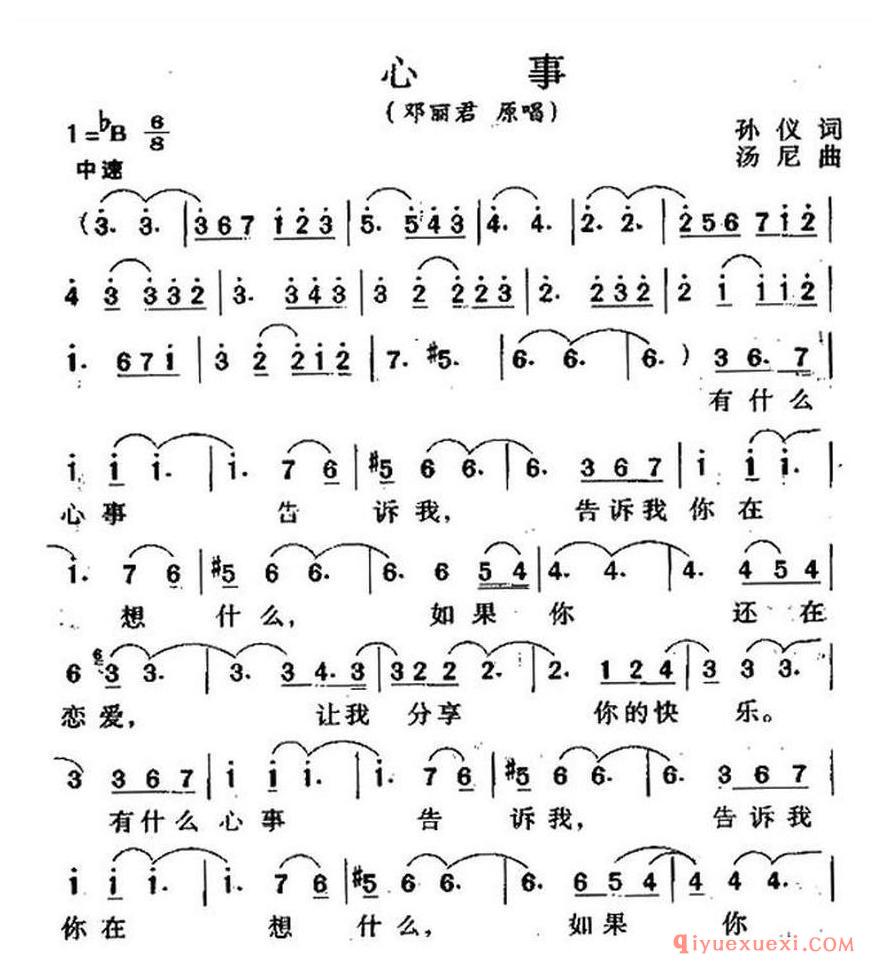 心 事
(邓丽君 原唱)
1=♭B 6/8
孙 仪 词
中速
汤 尼 曲
(3̇. 3̇. | 3̇67 1̇2̇3̇ | 5̇. 5̇4̇3̇ | 4̇. 4̇. | 2̇. 2̇. | 2̇567 1̇2̇ |
4̇ 3̇ 3̇3̇2̇ | 3̇. 3̇4̇3̇ | 3̇ 2̇ 2̇2̇3̇ | 2̇. 2̇3̇2̇ | 2̇ 1̇ 1̇1̇2̇ |
1̇. 671̇ | 3̇ 2̇ 2̇1̇2̇ | 7. #5. | 6. 6. | 6. ) 3 6. 7 |
有什么
1̇ 1̇ 1̇. | 1̇. 7 6 | #5 6 6. | 6. 3 6 7 | 1̇ 1̇ 1̇. |
心 事 告 诉 我, 告诉我 你 在
1̇. 7 6 | #5 6 6. | 6. 6 5 4 | 4. 4. | 4. 4 5 4 |
想 什 么, 如 果 你 还 在
6 6 3 3. | 3. 3 4. 3 | 3 2 2 2 2. | 2. 1 2 4 | 3 3 3. |
恋 爱, 让我 分享 你的快 乐。
3 3 6 7 | 1̇ 1̇ 1̇. | 1̇. 7 6 | #5 6 6. | 6. 3 6 7 |
有什么 心 事 告 诉 我, 告诉我
1̇ 1̇ 1̇. | 1̇. 7 6 | #5 6 6. | 6. 6 5 4 | 4 4 4. |
你 在 想 什 么, 如 果 你
qiyuexuexi.com